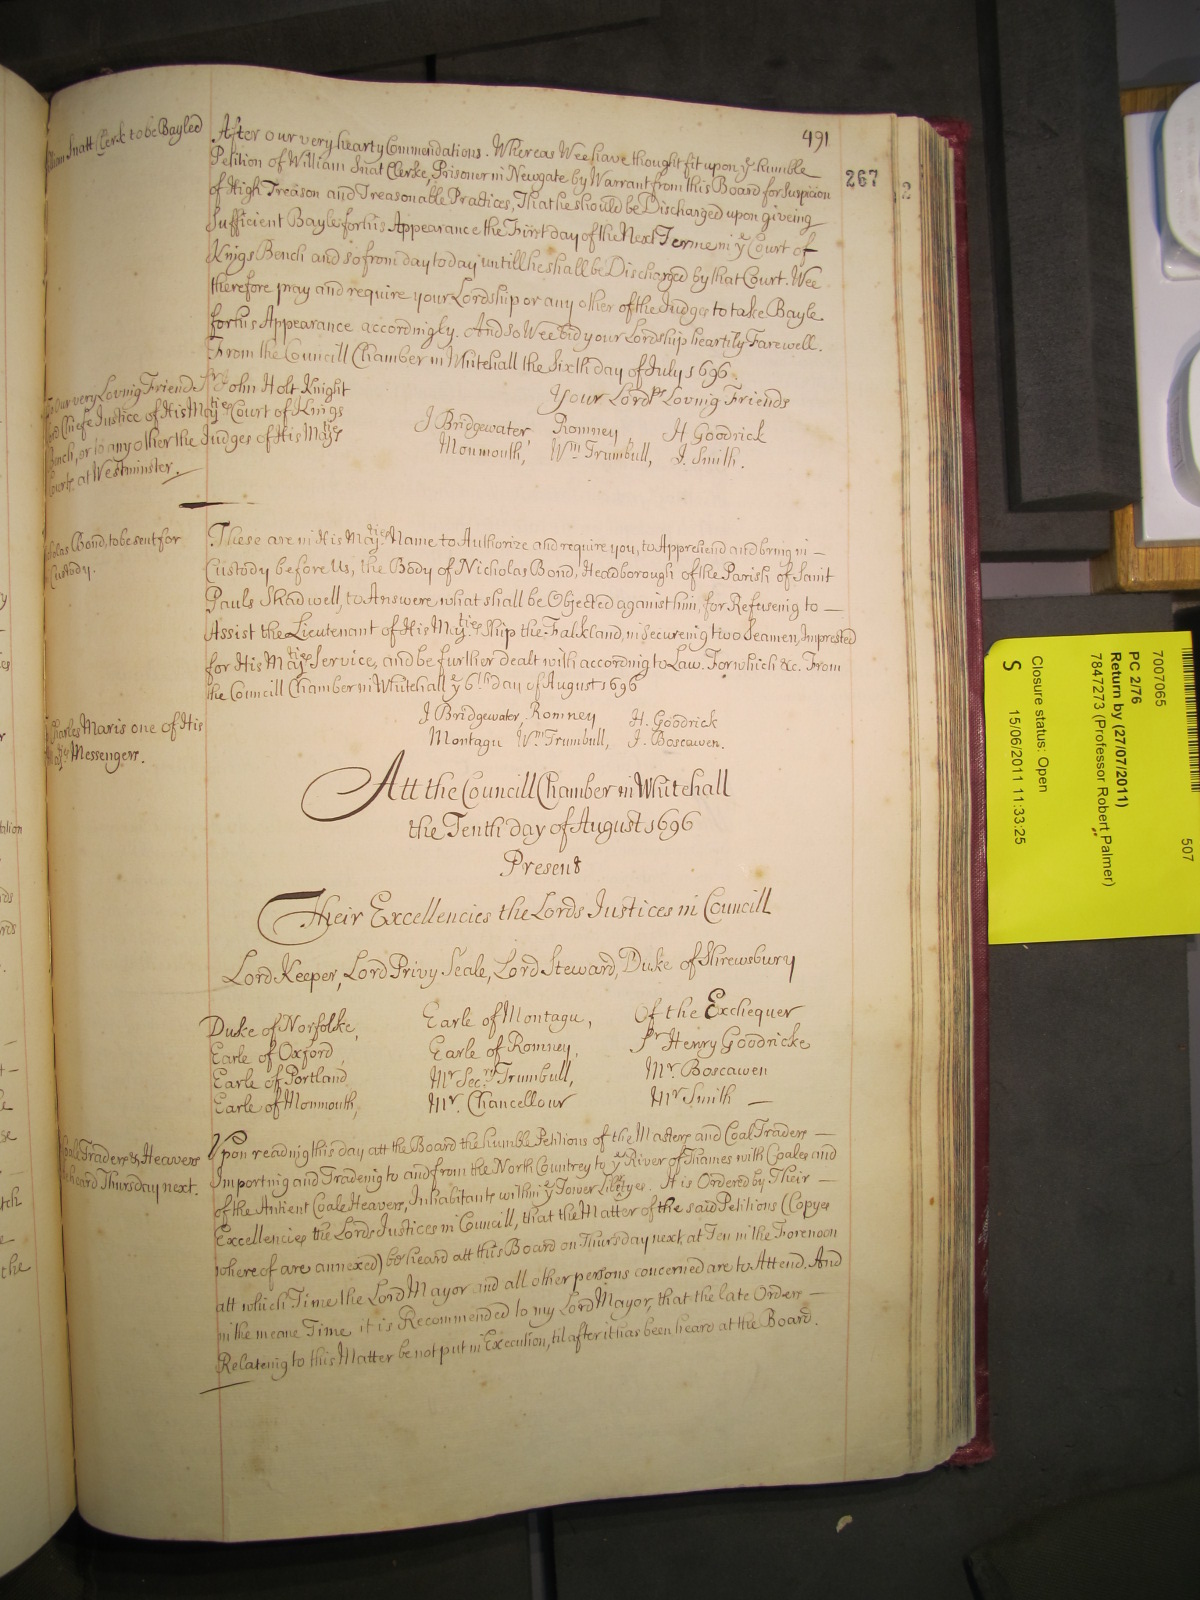 491
267
2
William Snatt Clerk to be Bayled
After our very hearty Commendations. Whereas Wee have thought fit upon ye humble
Petition of William Snat Clerke, Prisoner in Newgate by Warrant from this Board for Suspicion
of High Treason and Treasonable Practices, That he should be Discharged upon giveing
Sufficient Bayle for his Appearance the First day of the Next Terme in ye Court of
Kings Bench and so from day to day untill he shall be Discharged by that Court. Wee
therefore pray and require your Lordship or any other of the Judges to take Bayle
for his Appearance accordingly. And so Wee bid your Lordship heartily Farewell.
From the Councill Chamber in Whitehall the Sixth day of July 1696
Your Lordps Loving Friends
To our very Loving Friend Sr John Holt Knight
Lord Chiefe Justice of His Maties Court of Kings
Bench, or to any other the Judges of His Maties
Courts at Westminster.
J Bridgewater, Romney, H Goodrick
Monmouth, Wm Trumbull, J. Smith.
Nicholas Bond, to be sent for
Custody.
These are in His Maties Name to Authorize and require you, to Apprehend and bring in —
Custody before Us, the Body of Nicholas Bond, Headborough of the Parish of Saint
Pauls Shadwell, to Answere what shall be Objected against him, for Refuseing to —
Assist the Lieutenant of His Maties Ship the Falkland, in Secureing two Seamen, Imprested
for His Maties Service, and be further dealt with according to Law. For which &c. From
the Councill Chamber in Whitehall ye 6th day of August 1696
Charles Maris one of His
Maties Messengers.
J Bridgewater, Romney H. Goodrick
Montagu Wm Trumbull, J. Boscawen.
Att the Councill Chamber in Whitehall
the Tenth day of August 1696
Present
Their Excellencies the Lords Justices in Councill
Lord Keeper, Lord Privy Seale, Lord Steward, Duke of Shrewsbury
Duke of Norfolke, Earle of Montagu, Of the Exchequer
Earle of Oxford, Earle of Romney, Sr Henry Goodricke
Earle of Portland, Mr Secry Trumbull, Mr. Boscawen
Earle of Monmouth, Mr. Chancellour Mr Smith —
Coale Traders & Heavers
be heard Thursday next.
Upon reading this day att the Board the humble Petitions of the Masters and Coal Traders —
Importing and Tradeing to and from the North Countrey to ye River of Thames with Coales and
of the Antient Coale Heavers, Inhabitants within ye Tower Libtyes. It is Ordered by Their —
Excellencies the Lords Justices in Councill, that the Matter of the said Petitions (Copyes
whereof are annexed) be heard att this Board on Thursday next, at Ten in the Forenoon
att which Time the Lord Mayor and all other persons concerned are to Attend. And
in the meane Time it is Recommended to my Lord Mayor, that the late Orders —
Relateing to this Matter be not put in Execution, til after it has been heard at the Board.
7007065
507
PC 2/76
Return by (27/07/2011)
7847273 (Professor Robert Palmer)
Closure status: Open
S
15/06/2011 11:33:25